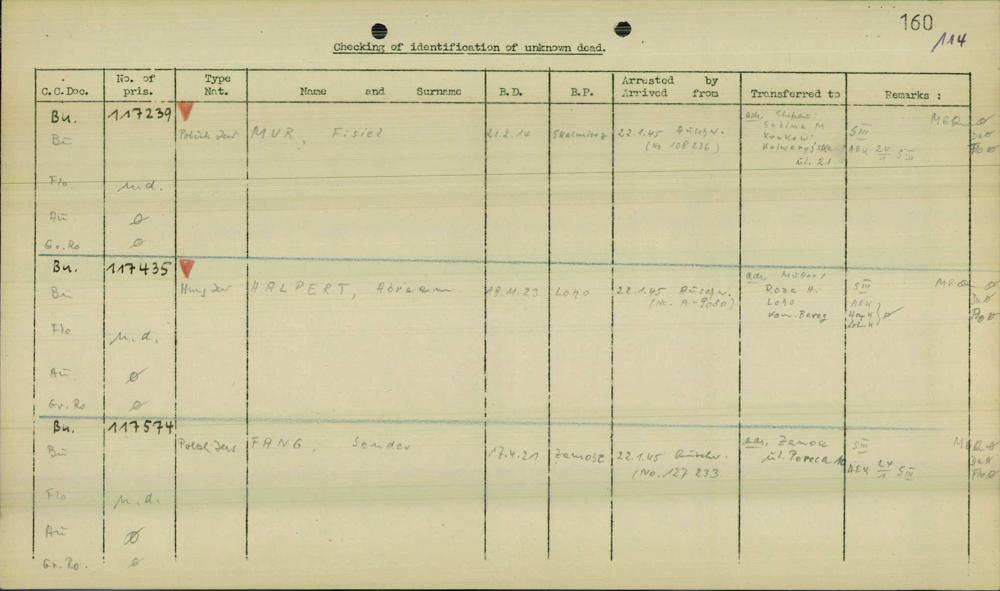 160
114
Checking of identification of unknown dead.
C.C.Doc. No. of pris. Type Nat. Name and Surname B.D. B.P. Arrested by Arrived from Transferred to Remarks :
Bu. 117239
Bu Polish Jew MUR, Fisiel 21.2.14 Skalmierz 22.1.45 Auschw. (No 108236)
adr. Ehefrau:
Krakow
ül. 21
SIII
AEK 24/1 SIII
Flo n.d.
Au ø
Gr.Ro ø
Bu. 117435
Bu Hung Jew HALPERT, Abraam 19.11.23 Loho 22.1.45 Auschw. (No. A-9080)
adr. Mutter:
Roza H.
Loho
kom. Bereg
SIII
AEK
Flo n.d.
Au. ø
Gr. Ro ø
Bu. 117574
Bu Polish Jew FANG, Sender 17.4.21 Zamosc 22.1.45 Auschw. (No. 127 233
adr. Zamosc
ül. Pereca
SIII
AEK 24/1 SIII
Flo n.d.
Au ø
Gr. Ro. ø